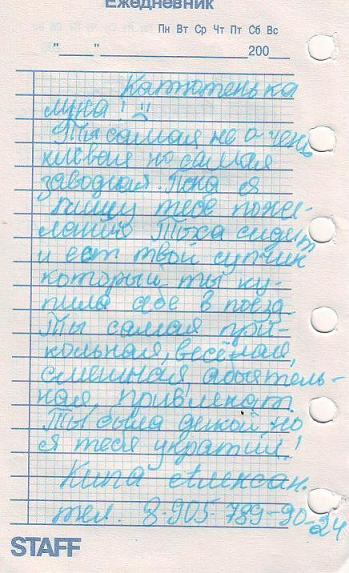 Ежедневник
Пн Вт Ср Чт Пт Сб Вс
"___" ________ 200__
Катютенька
муа! !!
Ты самая не о чень
клёвая но самая
заводная. Пока я
пишу тебе поже-
лание Тоха сидит
и ест твой супчик
который ты ку-
пила себе в поезд
Ты самая при-
кольная, весёлая,
смешная, абоятель-
ная привлекат.
Ты была дикой но
я тебя укратил!
Кипа Алексан.
тел. 8-905-789-90-24
STAFF